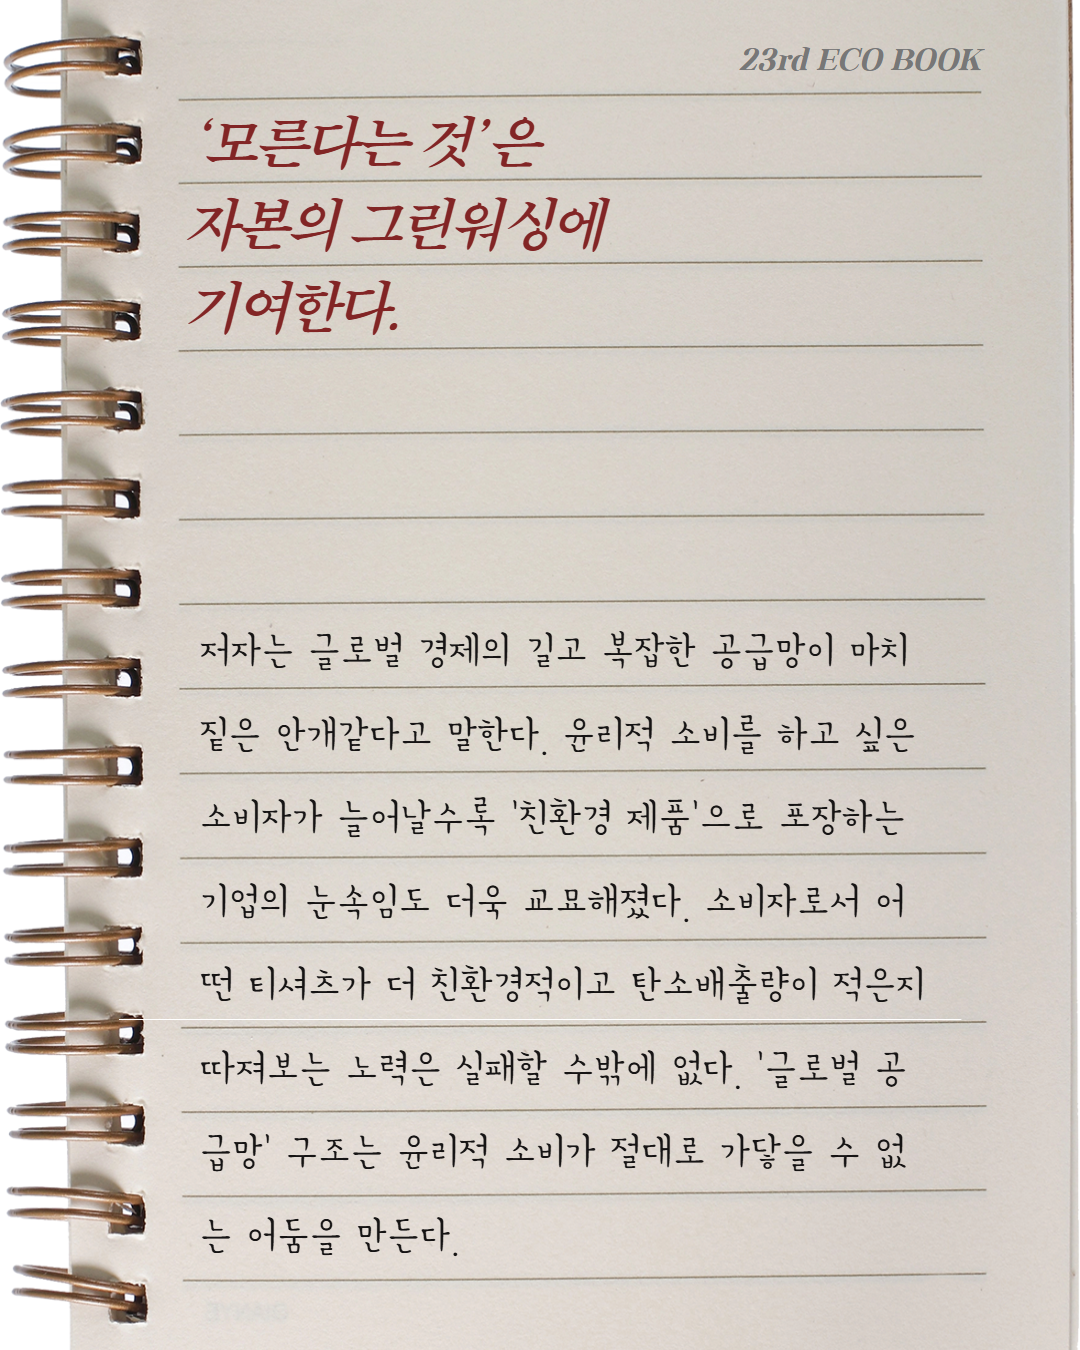 23rd ECO BOOK
‘모른다는 것’은
자본의 그린워싱에
기여한다.
저자는 글로벌 경제의 길고 복잡한 공급망이 마치
짙은 안개같다고 말한다. 윤리적 소비를 하고 싶은
소비자가 늘어날수록 '친환경 제품'으로 포장하는
기업의 눈속임도 더욱 교묘해졌다. 소비자로서 어
떤 티셔츠가 더 친환경적이고 탄소배출량이 적은지
따져보는 노력은 실패할 수밖에 없다. '글로벌 공
급망' 구조는 윤리적 소비가 절대로 가닿을 수 없
는 어둠을 만든다.